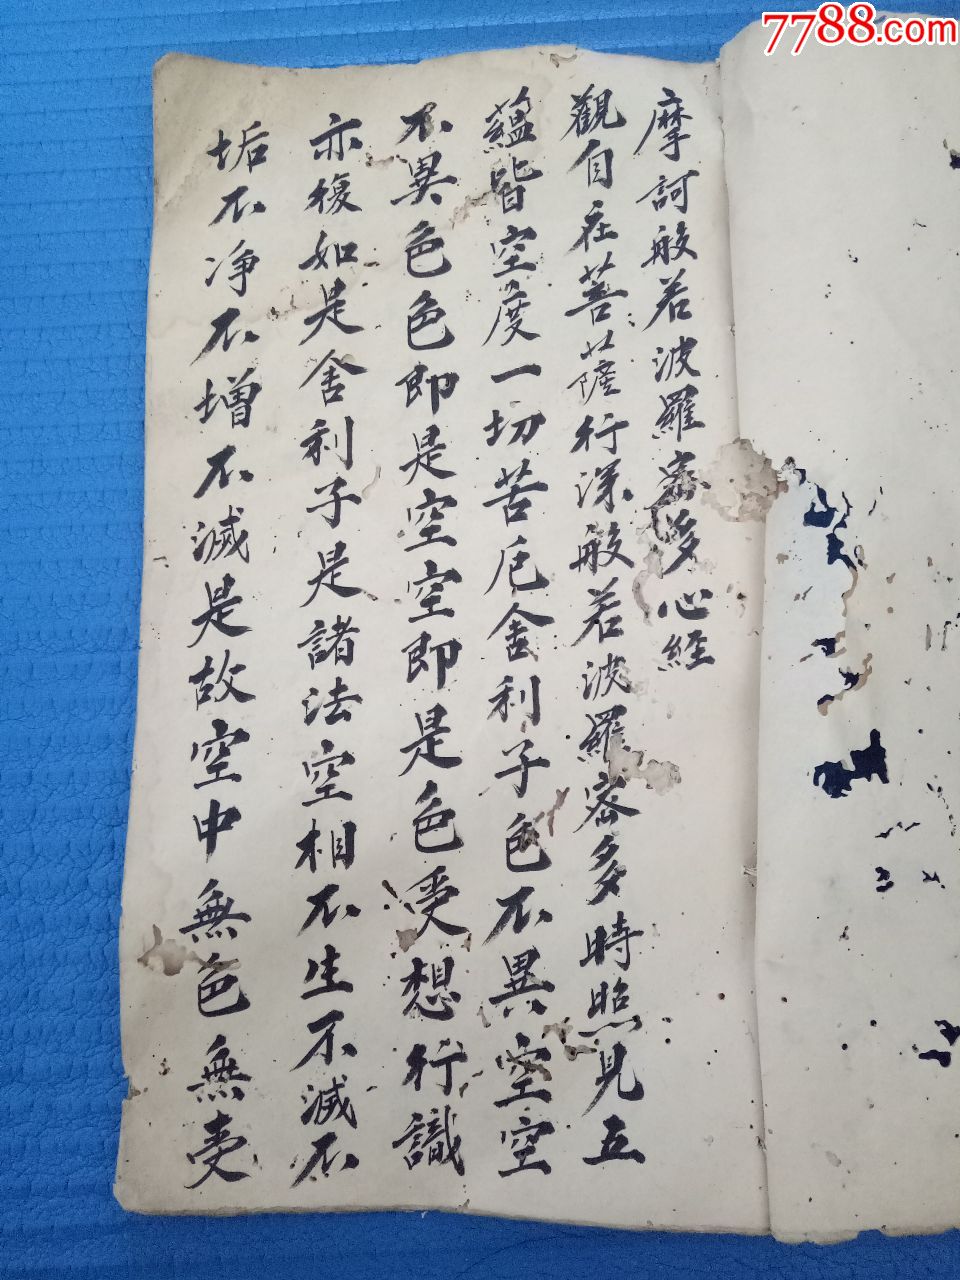 7788.com
摩訶般若波羅密多心經
觀自在菩薩行深般若波羅密多時照見五
蘊皆空度一切苦厄舍利子色不異空空
不異色色即是空空即是色受想行識
亦復如是舍利子是諸法空相不生不滅不
垢不净不增不滅是故空中無色無受